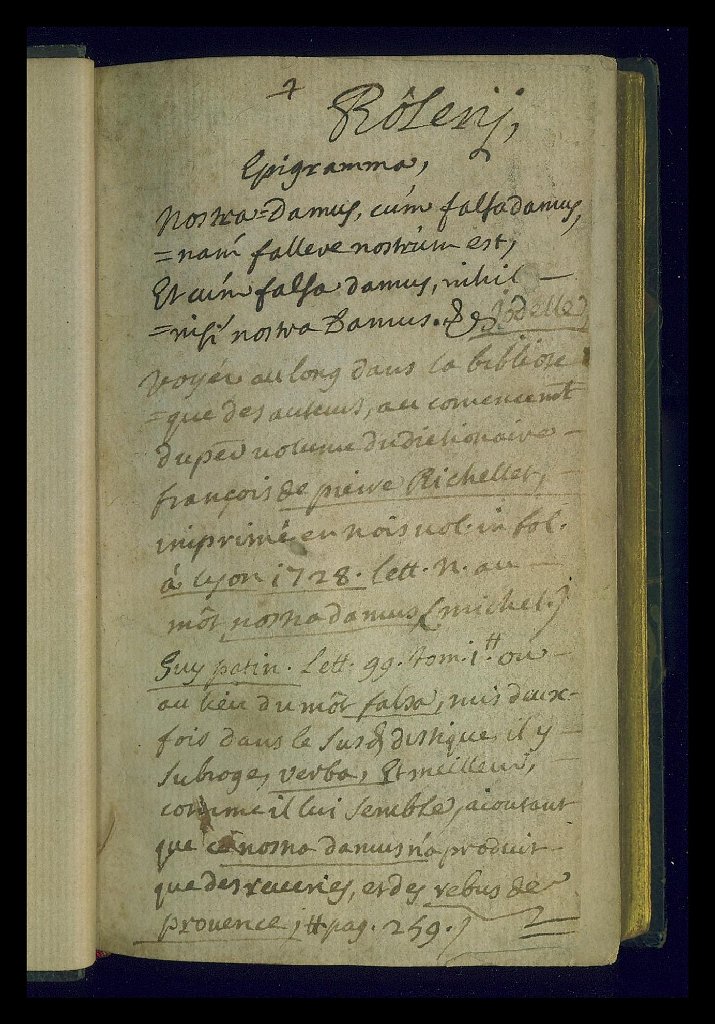 Rôlerij,
Epigramma,
Nostra=Damus, cúm falsa damus,
=nam fallere nostrúm est,
Et cúm falsa damus, nihil —
=nisí nostra Damus. De Jodelle
voyéz au long dans la bibliote
=que des auteurs, au comencemt
du per volume du dictionaire —
françois de pierre Richellet, —
imprimé en trois vol. in fol.
á lyon 1728. lett. N. au —
môt nostradamus (michel.)
Guy patin. Lett. 99. tom. 1. # ou —
au lieu du môt falsa, mis deux-
fois dans le susd distique, il y —
subroge, verba, Et meilleur, —
comme il lui semble, aioutant
que ce nostradamus n'a produit
que des reueries, et des rebus de
prouence, # pag. 259.)